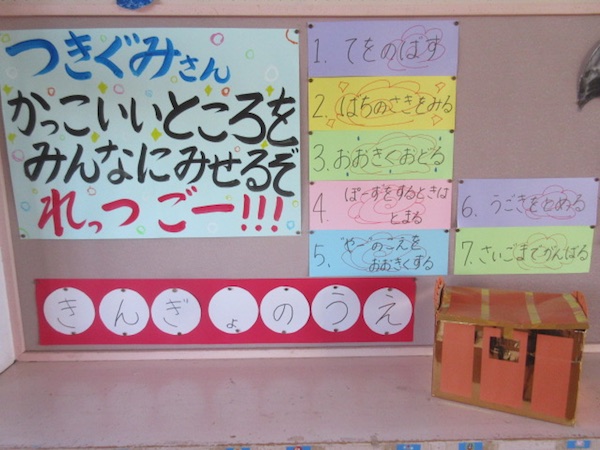 つきぐみさん
かっこいいところを
みんなにみせるぞ
れっつごー!!!
1. てをのばす
2. ばちのさきをみる
3. おおきくおどる
4. ぽーずをするときは
とまる
5. やーのこえを
おおきくする
6. うごきをとめる
7. さいごまでがんばる
きんぎょのうえ